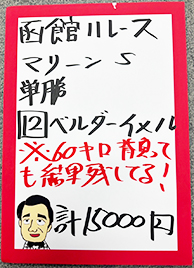 函館11レース
マリーンS
単勝
⑫ベルダーイメル
※60キロ背負って
も結果残してる!
計15000円